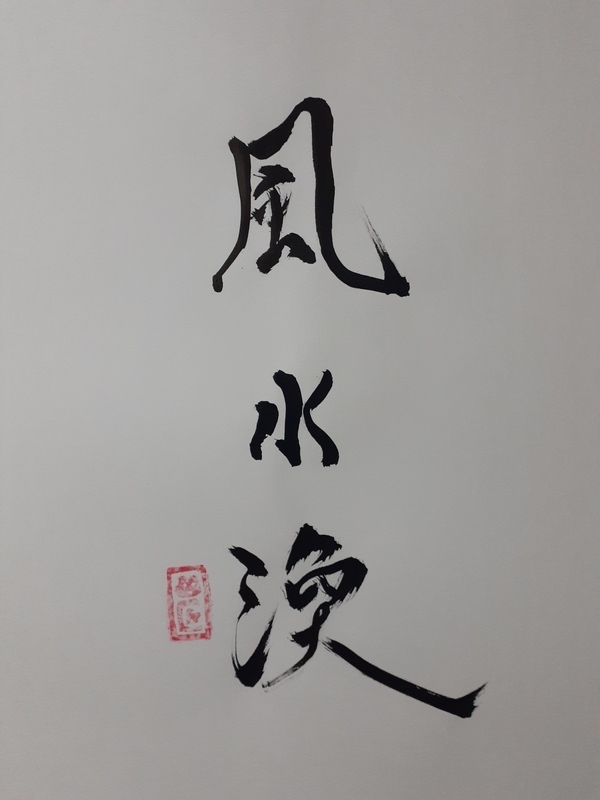 風
水
渙